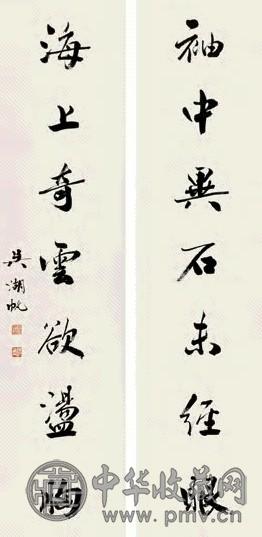 袖中異石未經眼
海上奇雲欲盪胸
吳湖帆
中华收藏网
www.pmv.cn